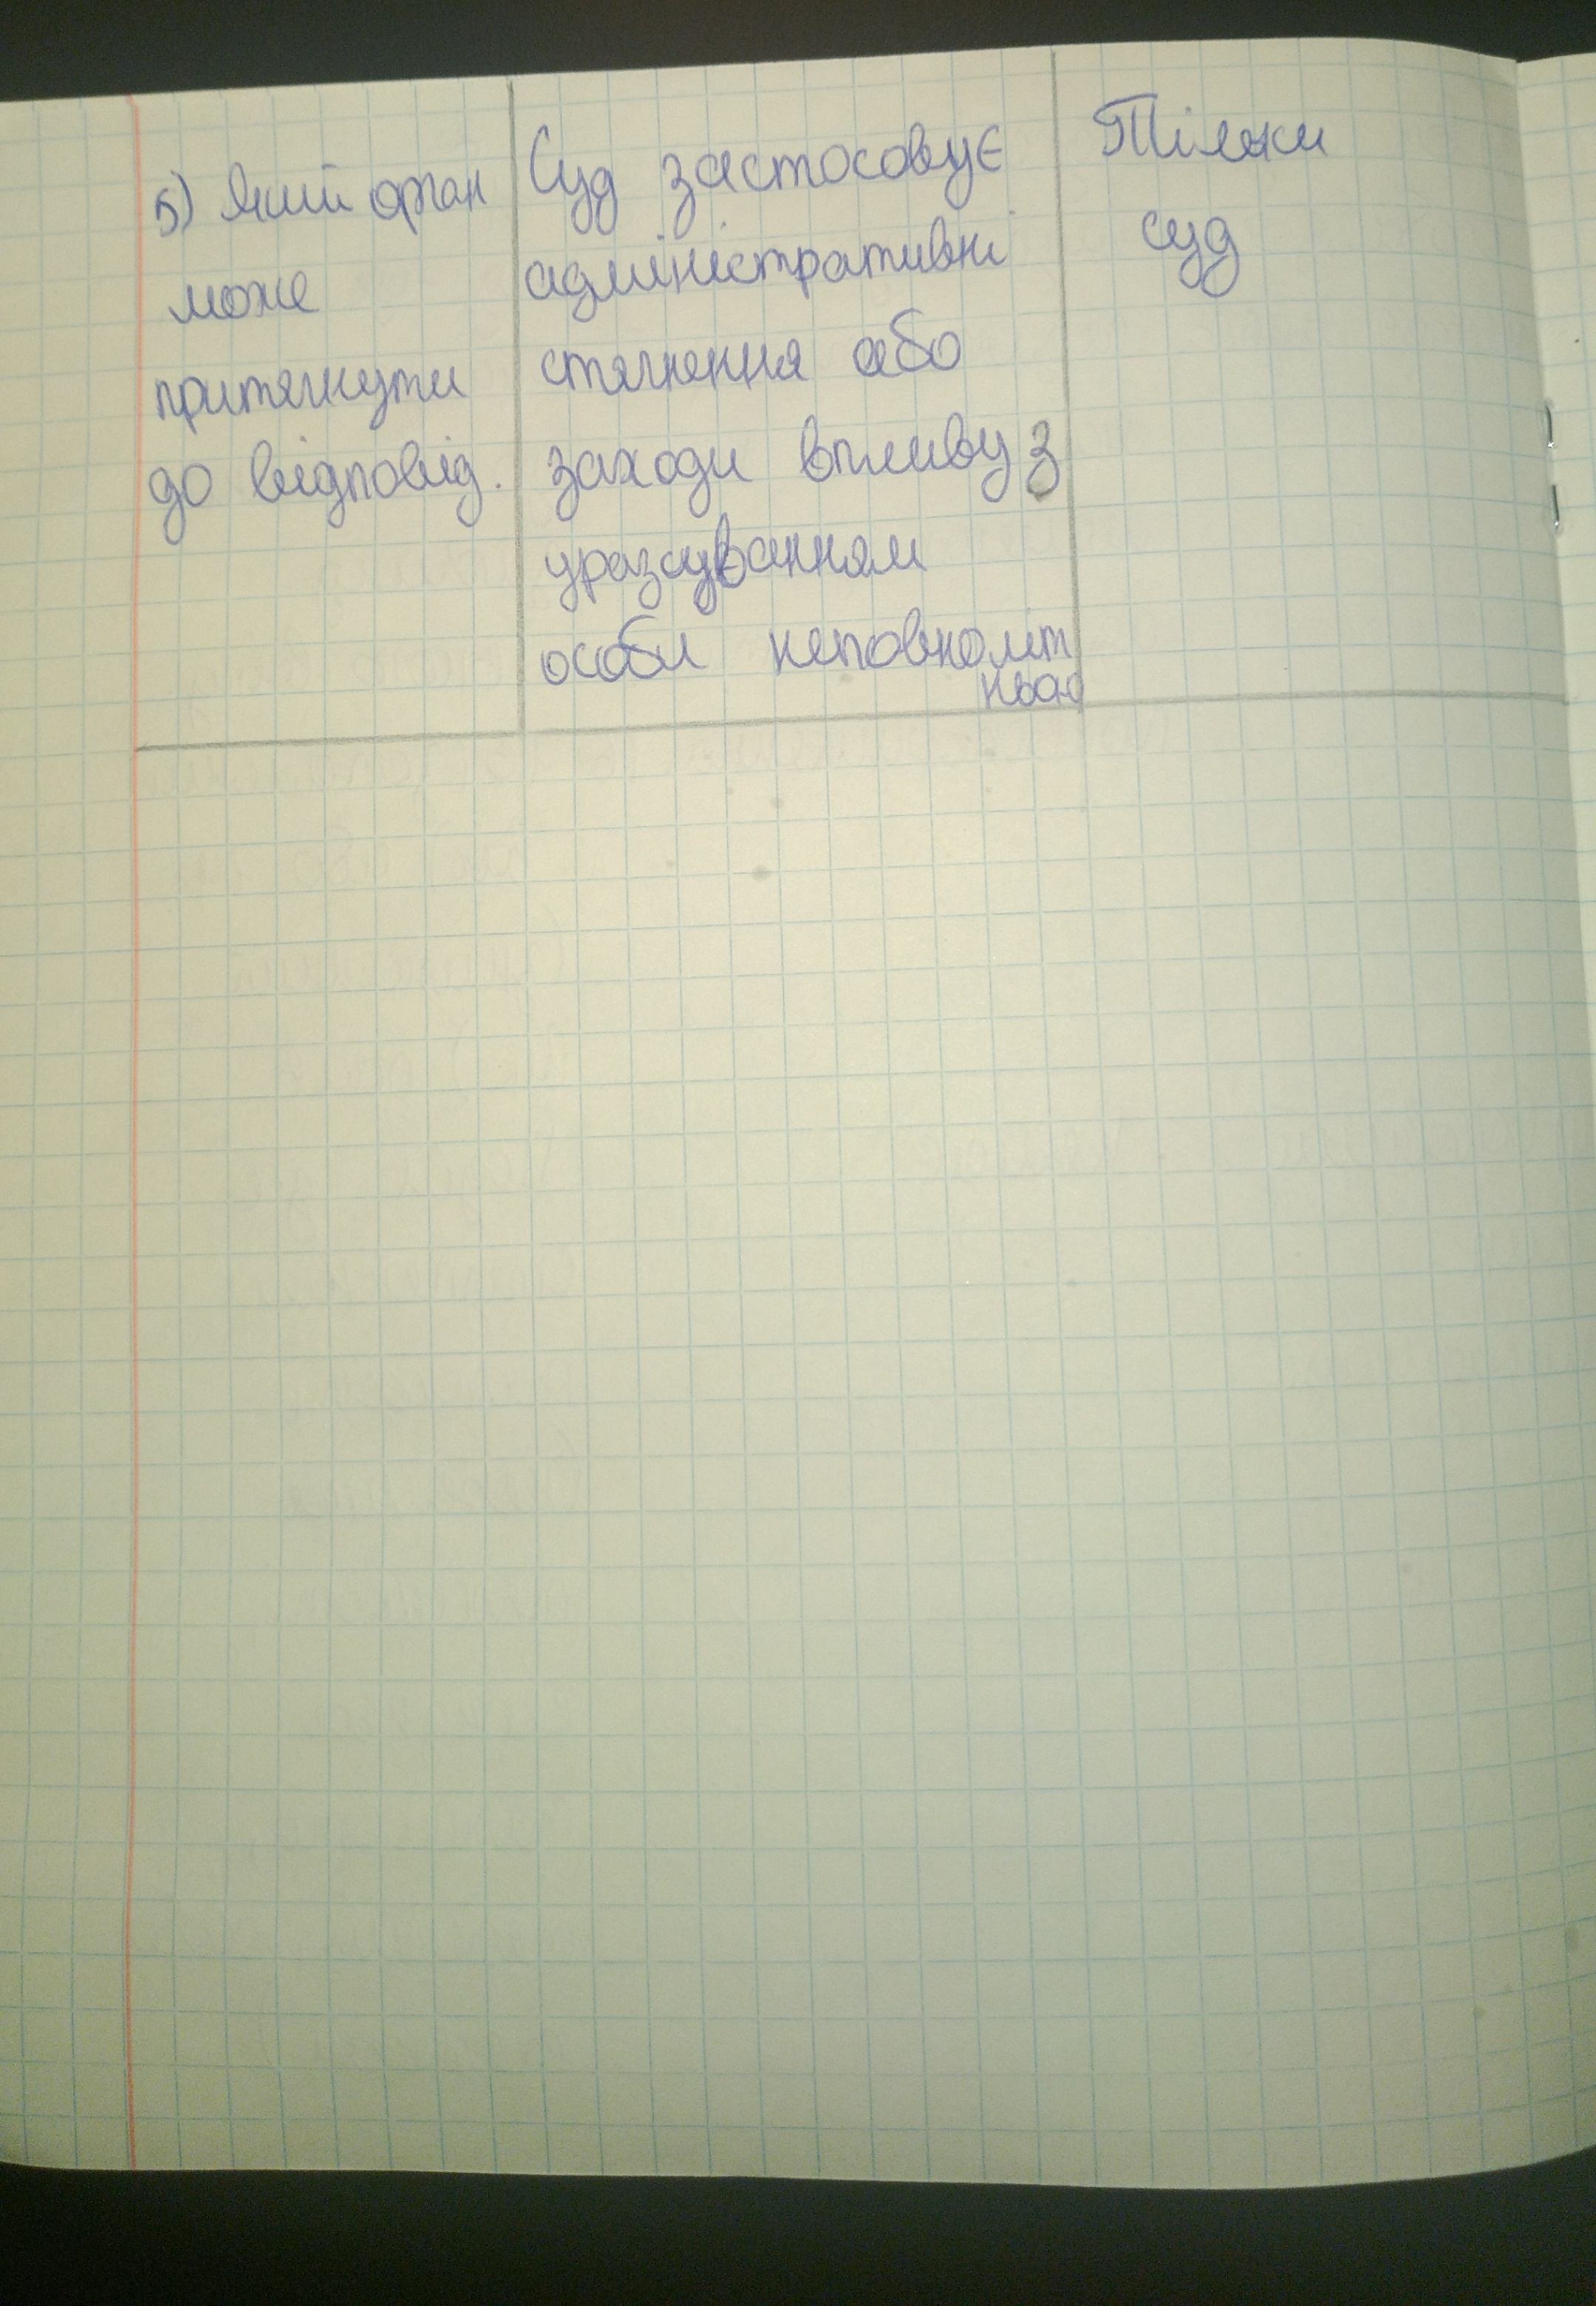 5) Який орган
може
притягнути
до відповід.
Суд застосовує
адміністративні
стягнення або
заходи впливу з
уразсуванням
особи неповноліт
нього
Тільки
суд